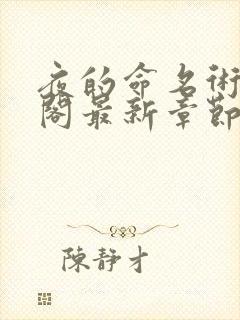 夜的命名術
閣最新章節
陳靜才